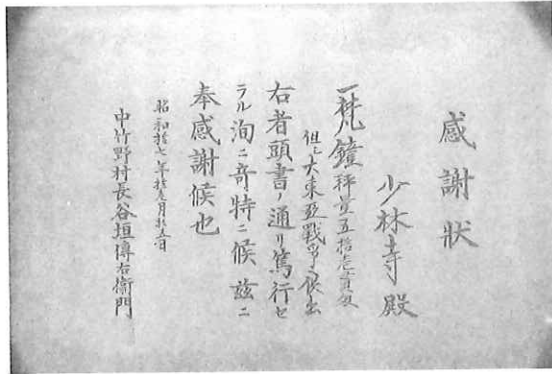 感謝狀
少林寺殿
一梵鐘 秤量五拾壱貫匁
但シ大東亞戰爭ヘ供出
右者頭書ノ通リ篤行セ
ラル洵ニ奇特ニ候茲ニ
奉感謝候也
昭和拾七年拾壱月拾五日
中竹野村長谷垣傳右衞門